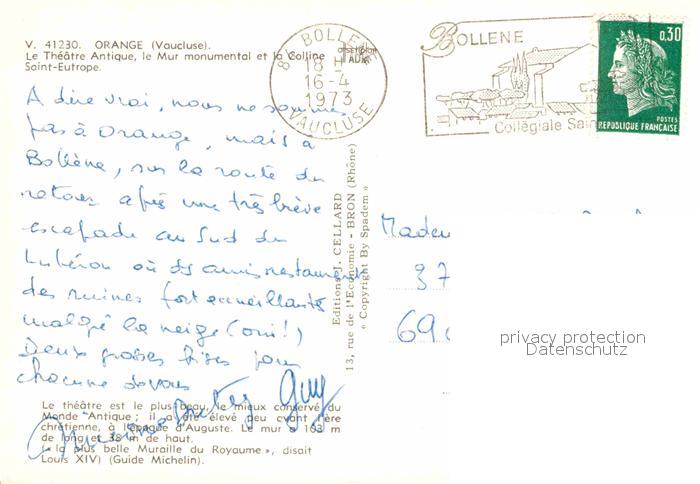 V. 41230. ORANGE (Vaucluse).
Le Théâtre Antique, le Mur monumental et la Colline
Saint-Eutrope.
84 BOLLENE
18 H
16-4
1973
VAUCLUSE
BOLLENE
Collégiale Sain
0,30
POSTES
REPUBLIQUE FRANÇAISE
A dire vrai, nous ne sommes
pas à Orange, mais à
Bollène, sur la route du
retour après une très brève
escapade au Sud du
Lubéron où des amis restaurent
des ruines fort accueillantes
malgré la neige (oui!)
Deux grosses bises pour
chacune de vous
Guy
Editions J. CELLARD
13, rue de l'Economie - BRON (Rhône)
« Copyright By Spadem »
Madem
37
69
privacy protection
Datenschutz
Le théâtre est le plus beau, le mieux conservé du
Monde Antique ; il a été élevé peu avant l'ère
chrétienne, à l'époque d'Auguste. Le mur a 103 m
de long et 38 m de haut.
« la plus belle Muraille du Royaume », disait
Louis XIV) (Guide Michelin).